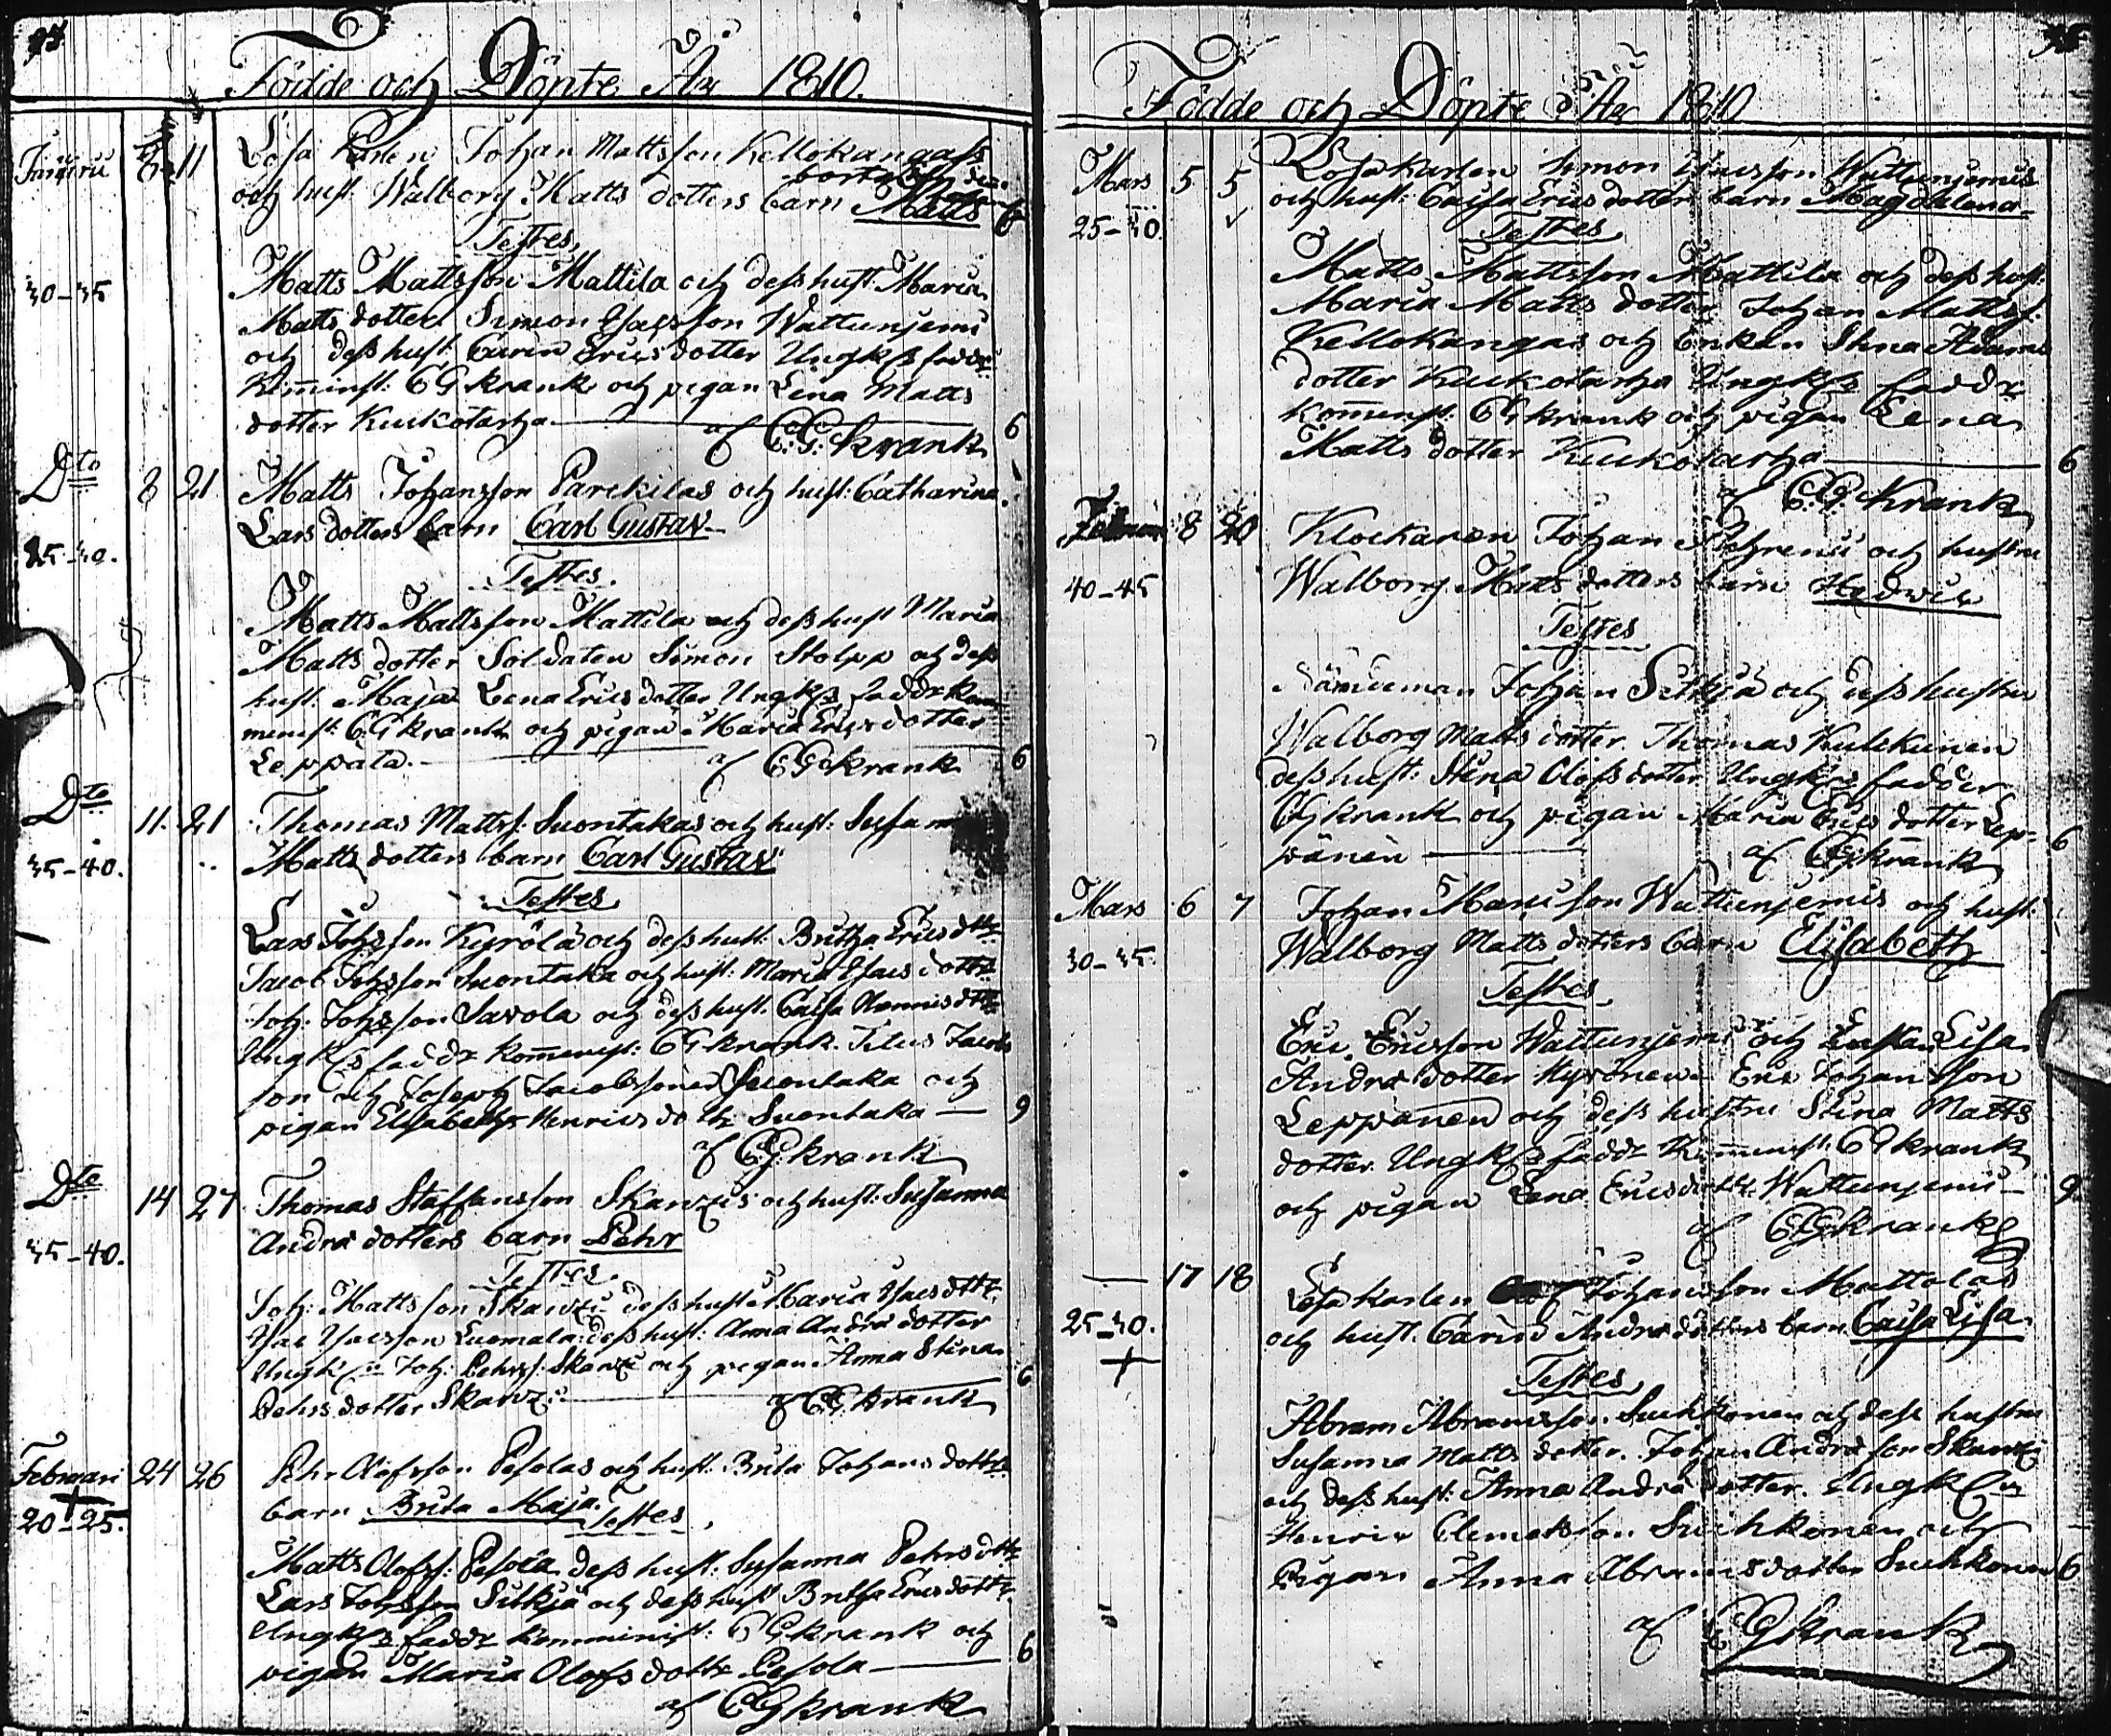 Födde och Döpte År 1810.
Januarii 11 Losa Karlen Johan Mattsson Kellokangass
och hust Walborg Matts dotters barn Matts 6
Testes
30-35
Matts Mattsson Mattila och dess hust. Maria
Matts dotter Simon Isacsson Wattunjemi
och dess hust. Carin Ericsdotter Ungkls faddr
Kom̄inist: CG krank och pigan Lena Matts
dotter Kuckotarha 6
af C.G. krank
Dto 8 21 Matts Johansson Parckilas och hust: Catharina
Lars dotters barn Carl Gustav
25-30.
Testes.
Matts Mattsson Mattila och dess hust Maria
Matts dotter Soldaten Simon Stolpp och dess
hust. Maja Lena Ericsdotter Ungkls faddr Kom
minist: C.G krank och pigan Maria Ericsdotter
Leppälä. 6
af CG krank
Dto 11. 21 Thomas Mattss. Suontakas och hust: Susanna
35-40.
Matts dotters barn Carl Gustav
Testes
Lars Johsson Kyrölä och dess hust. Britha Ericsdttr
Jacob Johsson Suontaka och hust: Maria Isacsdottr
Joh. Johsson Savola och dess hust. Caisa Hannusdttr
Ungkls faddr komminist: CG krank. Titus Jacobs
son och Joseph Jacobssoner Suontaka och
pigan Elisabeth Henricsdottr Suontaka 9
af C.G. krank
Dto 14 27 Thomas Staffansson Skanzis och hust. Susanna
35-40.
Andrs dotters barn Pehr
Testes
Joh: Mattsson Skanzi dess hust Maria Isacsdttr
Isac Isacsson Luomala dess hust: Anna Andrs dotter
Ungkln Joh: Pehrss. Skanzi och pigan Anna Stina
Pehrs dotter Skanzi 6
af C.G. krank
Februari 24 26 Pehr Olofsson Pesolas och hust. Brita Johans dottrs
20-25.
barn Brita Maja. Testes
Matts Olofss. Pesola dess hust. Susanna Pehrsdttr
Lars Johsson Sitkjä och dess hust Britha Ericsdottr
Ungkls faddr komminist: CG krank och
pigan Maria Olofs dottr Pesola 6
af CG krank
Födde och Döpte År 1810
Mars 5 5 Losa karlen Simon Isacsson Wattunjemis
25-30.
och hust: Caisa Erics dotters barn Magdalena
Testes
Matts Mattsson Mattila och dess hust:
Maria Matts dotter Johan Mattss.
Kellokangas och Enkan Stina Adams
dotter Kuckotarha Ungkls faddr
kom̄inist. CG krank och pigan Lena
Matts dotter Kuckotarha 6
af C.G. Krank
Februari 8 20 Klockaren Johan Pehrenii och hustru
40-45
Walborg Matts dotters barn Hedwig
Testes
Nämdeman Johan Sitkjä och dess hustru
Walborg Matts dotter. Thomas Kulckuinen
dess hust: Stina Olofs dotter Ungkls fadder
CG krank och pigan Maria Erics dotter Lep-
pänen 6
af CG krank
Mars 6 7 Johan Mariison Wattunjemis och hust:
30-35.
Walborg Matts dotters barn Elisabeth
Testes
Eric Ericsson Wattunjemi och Enkan Lisa
Andrs dotter Kyrönen Eric Johansson
Leppänen och dess hustru Stina Matts
dotter. Ungkls faddr Kom̄inist: CG krank
och pigan Lena Ericsdottr Wattunjemi 9
af CG krank
17 18 Losa karlen Johansson Mattolas
25-30.
och hust. Carin Andrs dotters barn Caisa Lisa.
Testes
Abram Abramsson Suihkonen och dess hustru
Susanna Matts dotter. Johan Andrsson Skanzi
och dess hust: Anna Andrs dotter. Ungkln
Henric Clemetsson Suihkonen och
Pigan Anna Abramsdotter Suihkonen 6
af CG krank